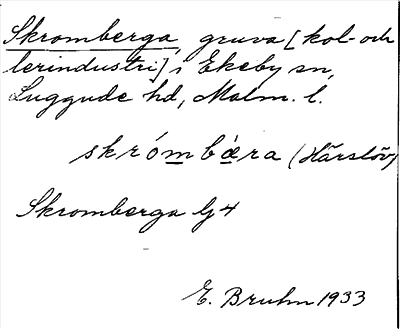 Skromberga, gruva [kol- och
lerindustri] i Ekeby sn,
Luggude hd, Malm. l.
skrómbæ̀ra (Härslöv)
Skromberga Gj4
E. Bruhn 1933